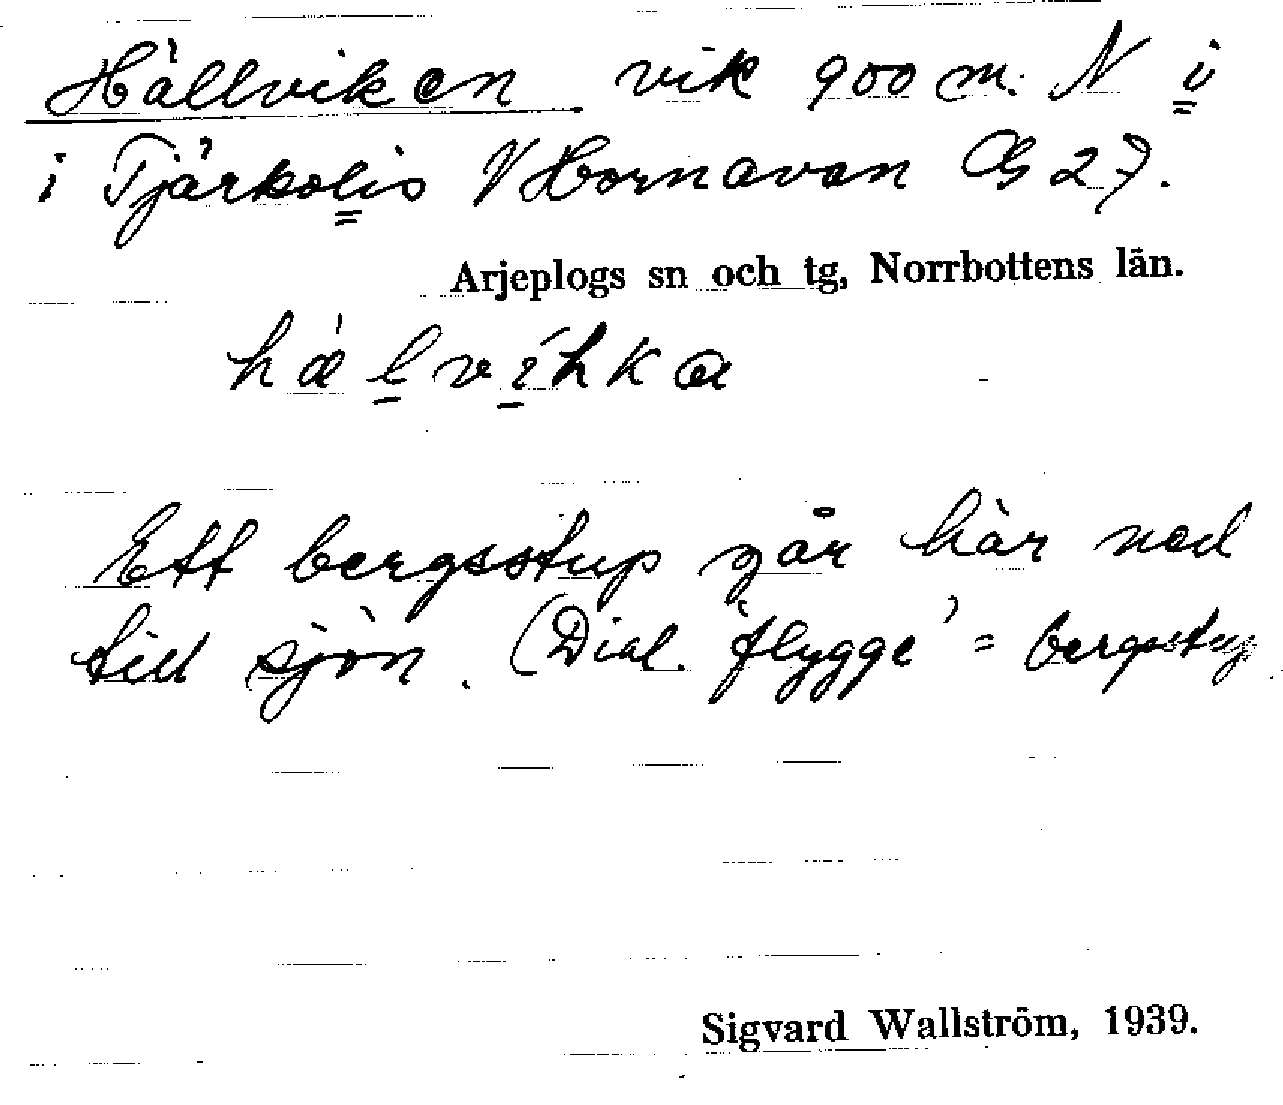 Hällviken vik 900 m. N i
i Tjärkolis V Hornavan G 27.
Arjeplogs sn och tg, Norrbottens län.
hälvihka
Ett bergsstup går här ned
till sjön. (Dial. 'flygge' = bergstup
Sigvard Wallström, 1939.